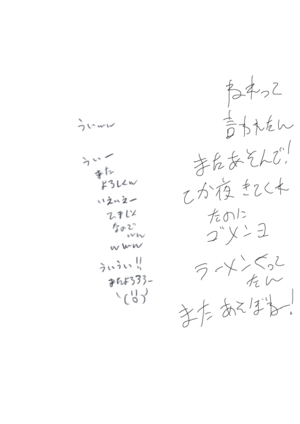 ねれって
言われたん
またあそんで!
てか夜きてくれ
たのに
ゴメンヨ
ラーメンくって
たん
またあそばねー!
うぃww
うぃー
また
よろしくw
いえいえー
てきしん
なので
ww
www
ういうい!!
またよろろろー